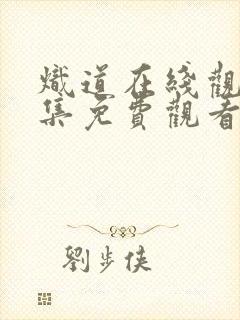 熾道在綫觀
集免費觀看
劉步俠